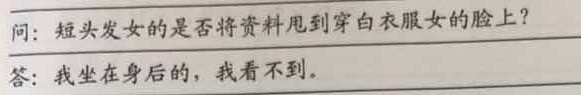 问：短头发女的是否将资料甩到穿白衣服女的脸上？
答：我坐在身后的，我看不到。